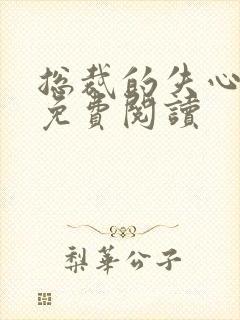 総裁的失心
免費閱讀
梨華公子